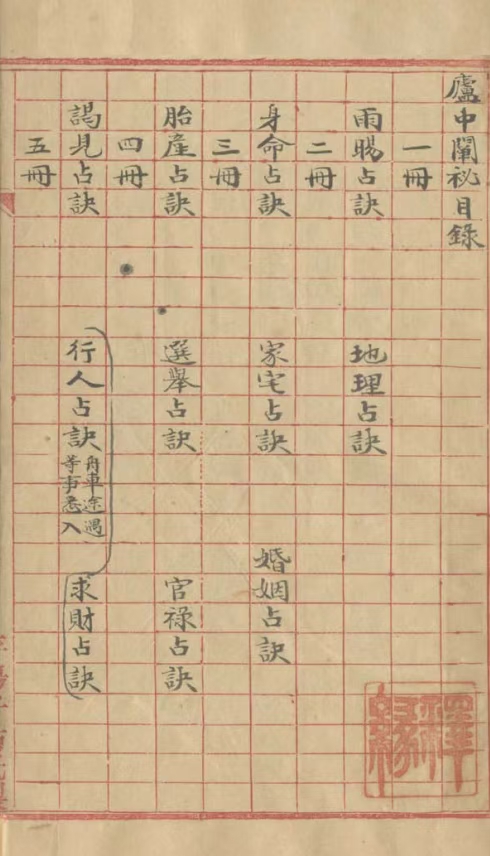 廬中闡祕目錄
一冊
雨暘占訣 地理占訣
二冊
身命占訣 家宅占訣 婚姻占訣
三冊
胎產占訣 選舉占訣 官祿占訣
四冊
謁見占訣 行人占訣 舟車途遇等事悉入 求財占訣
五冊